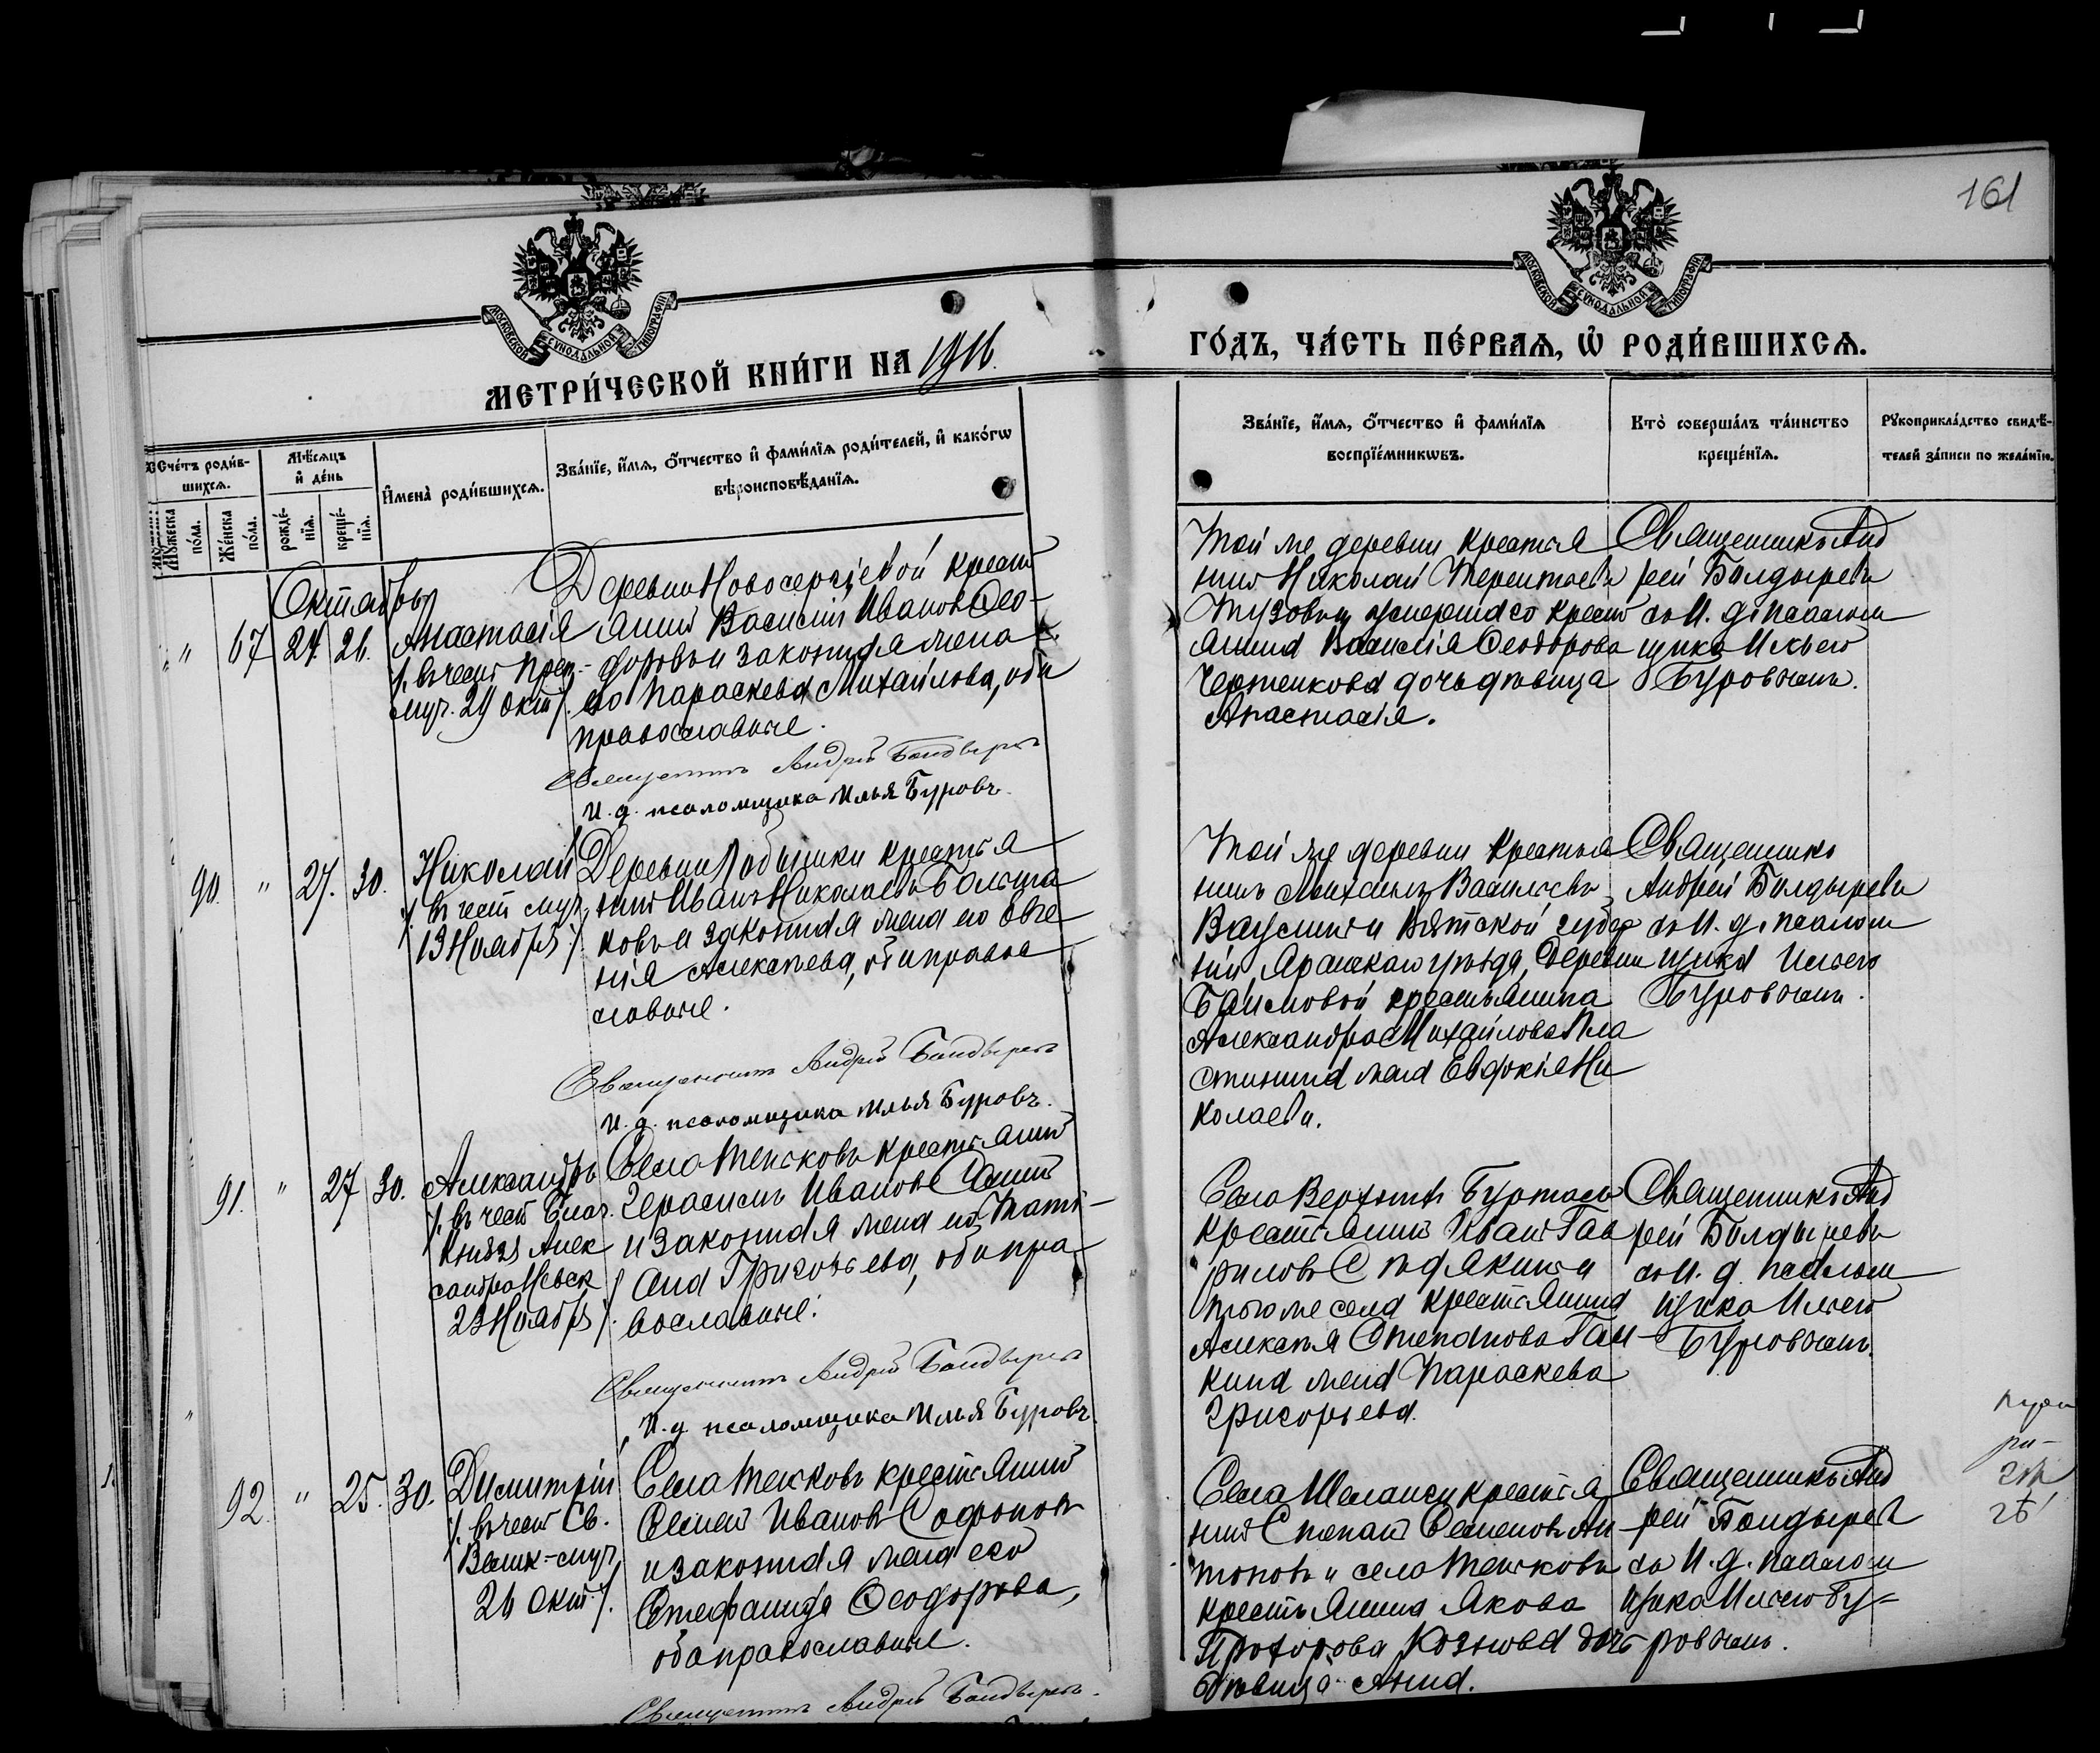 161
МОСКОВСКОЙ СУНОДАЛЬНОЙ ТИПОГРАФІИ
МОСКОВСКОЙ СУНОДАЛЬНОЙ ТИПОГРАФІИ
МЕТРИ́ЧЕСКОЙ КНИ́ГИ НА 1916.
ГО́ДЪ, ЧА́СТЬ ПЕ́РВАѦ, Ѡ҆ РОДИ́ВШИХСѦ.
Сче́тъ роди́в-
шихсѧ.
Мꙋжеска
по́ла.
Же́нска
по́ла.
Мѣ́сѧцъ
и҆ де́нь
рожде́-
нїѧ.
креще́-
нїѧ.
И҆мена̀ роди́вшихсѧ.
Зва́нїе, и҆́мѧ, ѻ҆́тчество и҆ фами́лїѧ роди́телей, и҆ како́гѡ
вѣроисповѣ́данїѧ.
Зва́нїе, и҆́мѧ, ѻ҆́тчество и҆ фами́лїѧ
воспрїе́мникѡвъ.
Кто̀ соверша́лъ та́инство
креще́нїѧ.
Рꙋкоприкла́дство свидѣ́-
телей за́писи по жела́нїю.
Октябрь
" 67 24. 26.
Анастасія
/. въ честь Преп.-
муч. 29 Окт /.
Деревни Новосергіевой крест
янинъ Василій Ивановъ Ѳео-
доровъ и законная жена
его Параскева Михайлова, оба
православные.
Священникъ Андрей Болдыревъ
И. д. псаломщика Илья Буровъ.
Той же деревни крестья
нинъ Николай Терентьевъ
умершаго крест
янина Василія Ѳеодорова
Чертенкова дочь дѣвица
Анастасія.
Священникъ Анд
рей Болдыревъ
съ И. д. псалом
щика Ильею
Буровымъ.
90. " 27. 30.
Николай
/. въ честь муч.
13 Ноября /.
Деревни крестья
нинъ Иванъ Николаевъ Больша
ковъ и законная жена его Евге
нія Алексѣева, оба правос
лавные.
Священникъ Андрей Болдыревъ
И. д. псаломщика Илья Буровъ.
Той же деревни крестья
нинъ Михаилъ Васильевъ
и Вятской губер
ніи, Яранскаго уѣзда, деревни
крестьянина
Александра Михайлова Пла
стинина жена Евдокія Ни
колаева.
Священникъ
Андрей Болдыревъ
съ И. д. псалом
щика Ильею
Буровымъ.
91. " 27 30.
Александръ
/. въ честь Благ.
Князя Алек
сандра Невск
23 Ноября /.
Села Теньковъ крестьянинъ
Герасимъ Ивановъ
и законная жена его Тать-
яна Григорьева, оба пра-
вославные.
Священникъ Андрей Болдыревъ
И. д. псаломщика Илья Буровъ.
Села Верхнихъ
крестьянинъ Иванъ Гав
риловъ и
того же села крестьянина
Алексѣя Степанова Гал-
кина жена Параскева
Григорьева.
Священникъ Анд
рей Болдыревъ
съ И. д. псалом
щика Ильею
Буровымъ.
92. " 25. 30.
Димитрій
/. въ честь Св.
Велик-муч.
26 Окт /.
Села Теньковъ крестьянинъ
Семенъ Ивановъ Софоновъ
и законная жена его
Стефанида Ѳеодорова,
оба православные.
Священникъ Андрей Болдыревъ.
Села Шеланги крестья
нинъ Степанъ Семеновъ Ан
тоновъ и села Теньковъ
крестьянина Якова
Прохорова Козлова дочь
дѣвица Анна.
Священникъ Анд
рей Болдыревъ
съ И. д. псалом
щика Ильею Бу-
ровымъ.